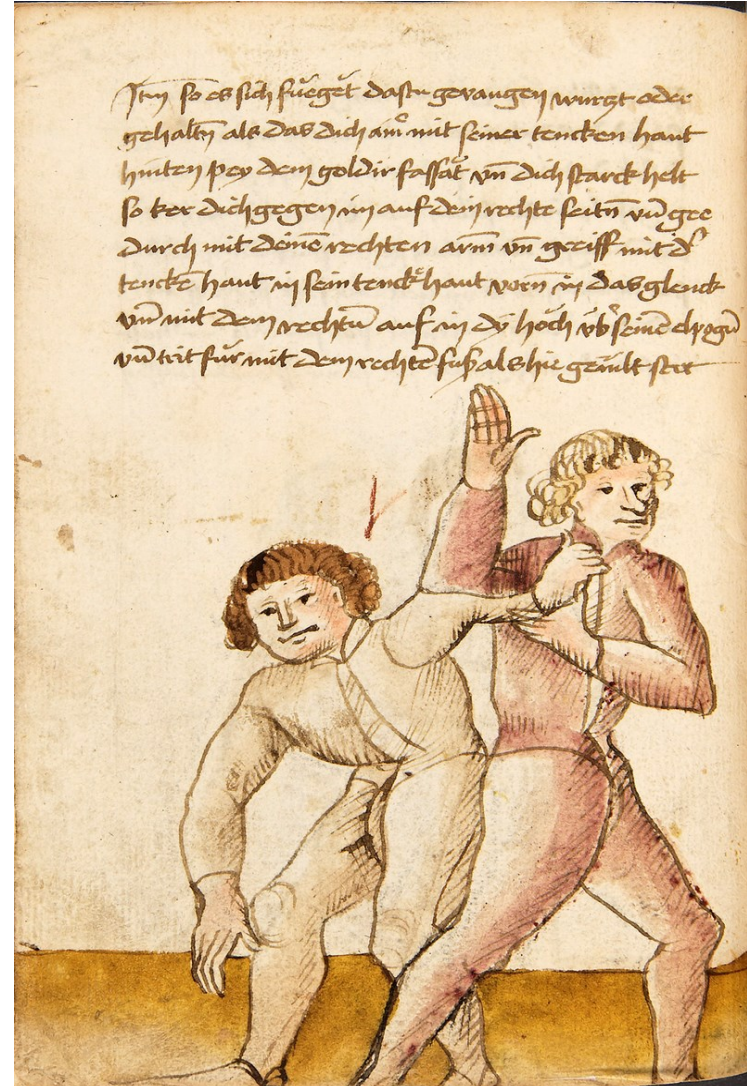 Itm so es sich füeget dastu gevangen wurzt oder
gehaltn als das dich ainr mit seiner tencken hant
hinten pey dem goldir fassat vn dich starck helt
so ker dich gegen im auf dein rechte seitn vn gee
durch mit deine rechten arm vn greiff mit dr
tencke hant in sein tencke hant vorn in das glenck
vn mit dem rechtn auf in dy höch vbr seine elpogn
vn trit für mit dem rechte fuß als hie gemlt stet